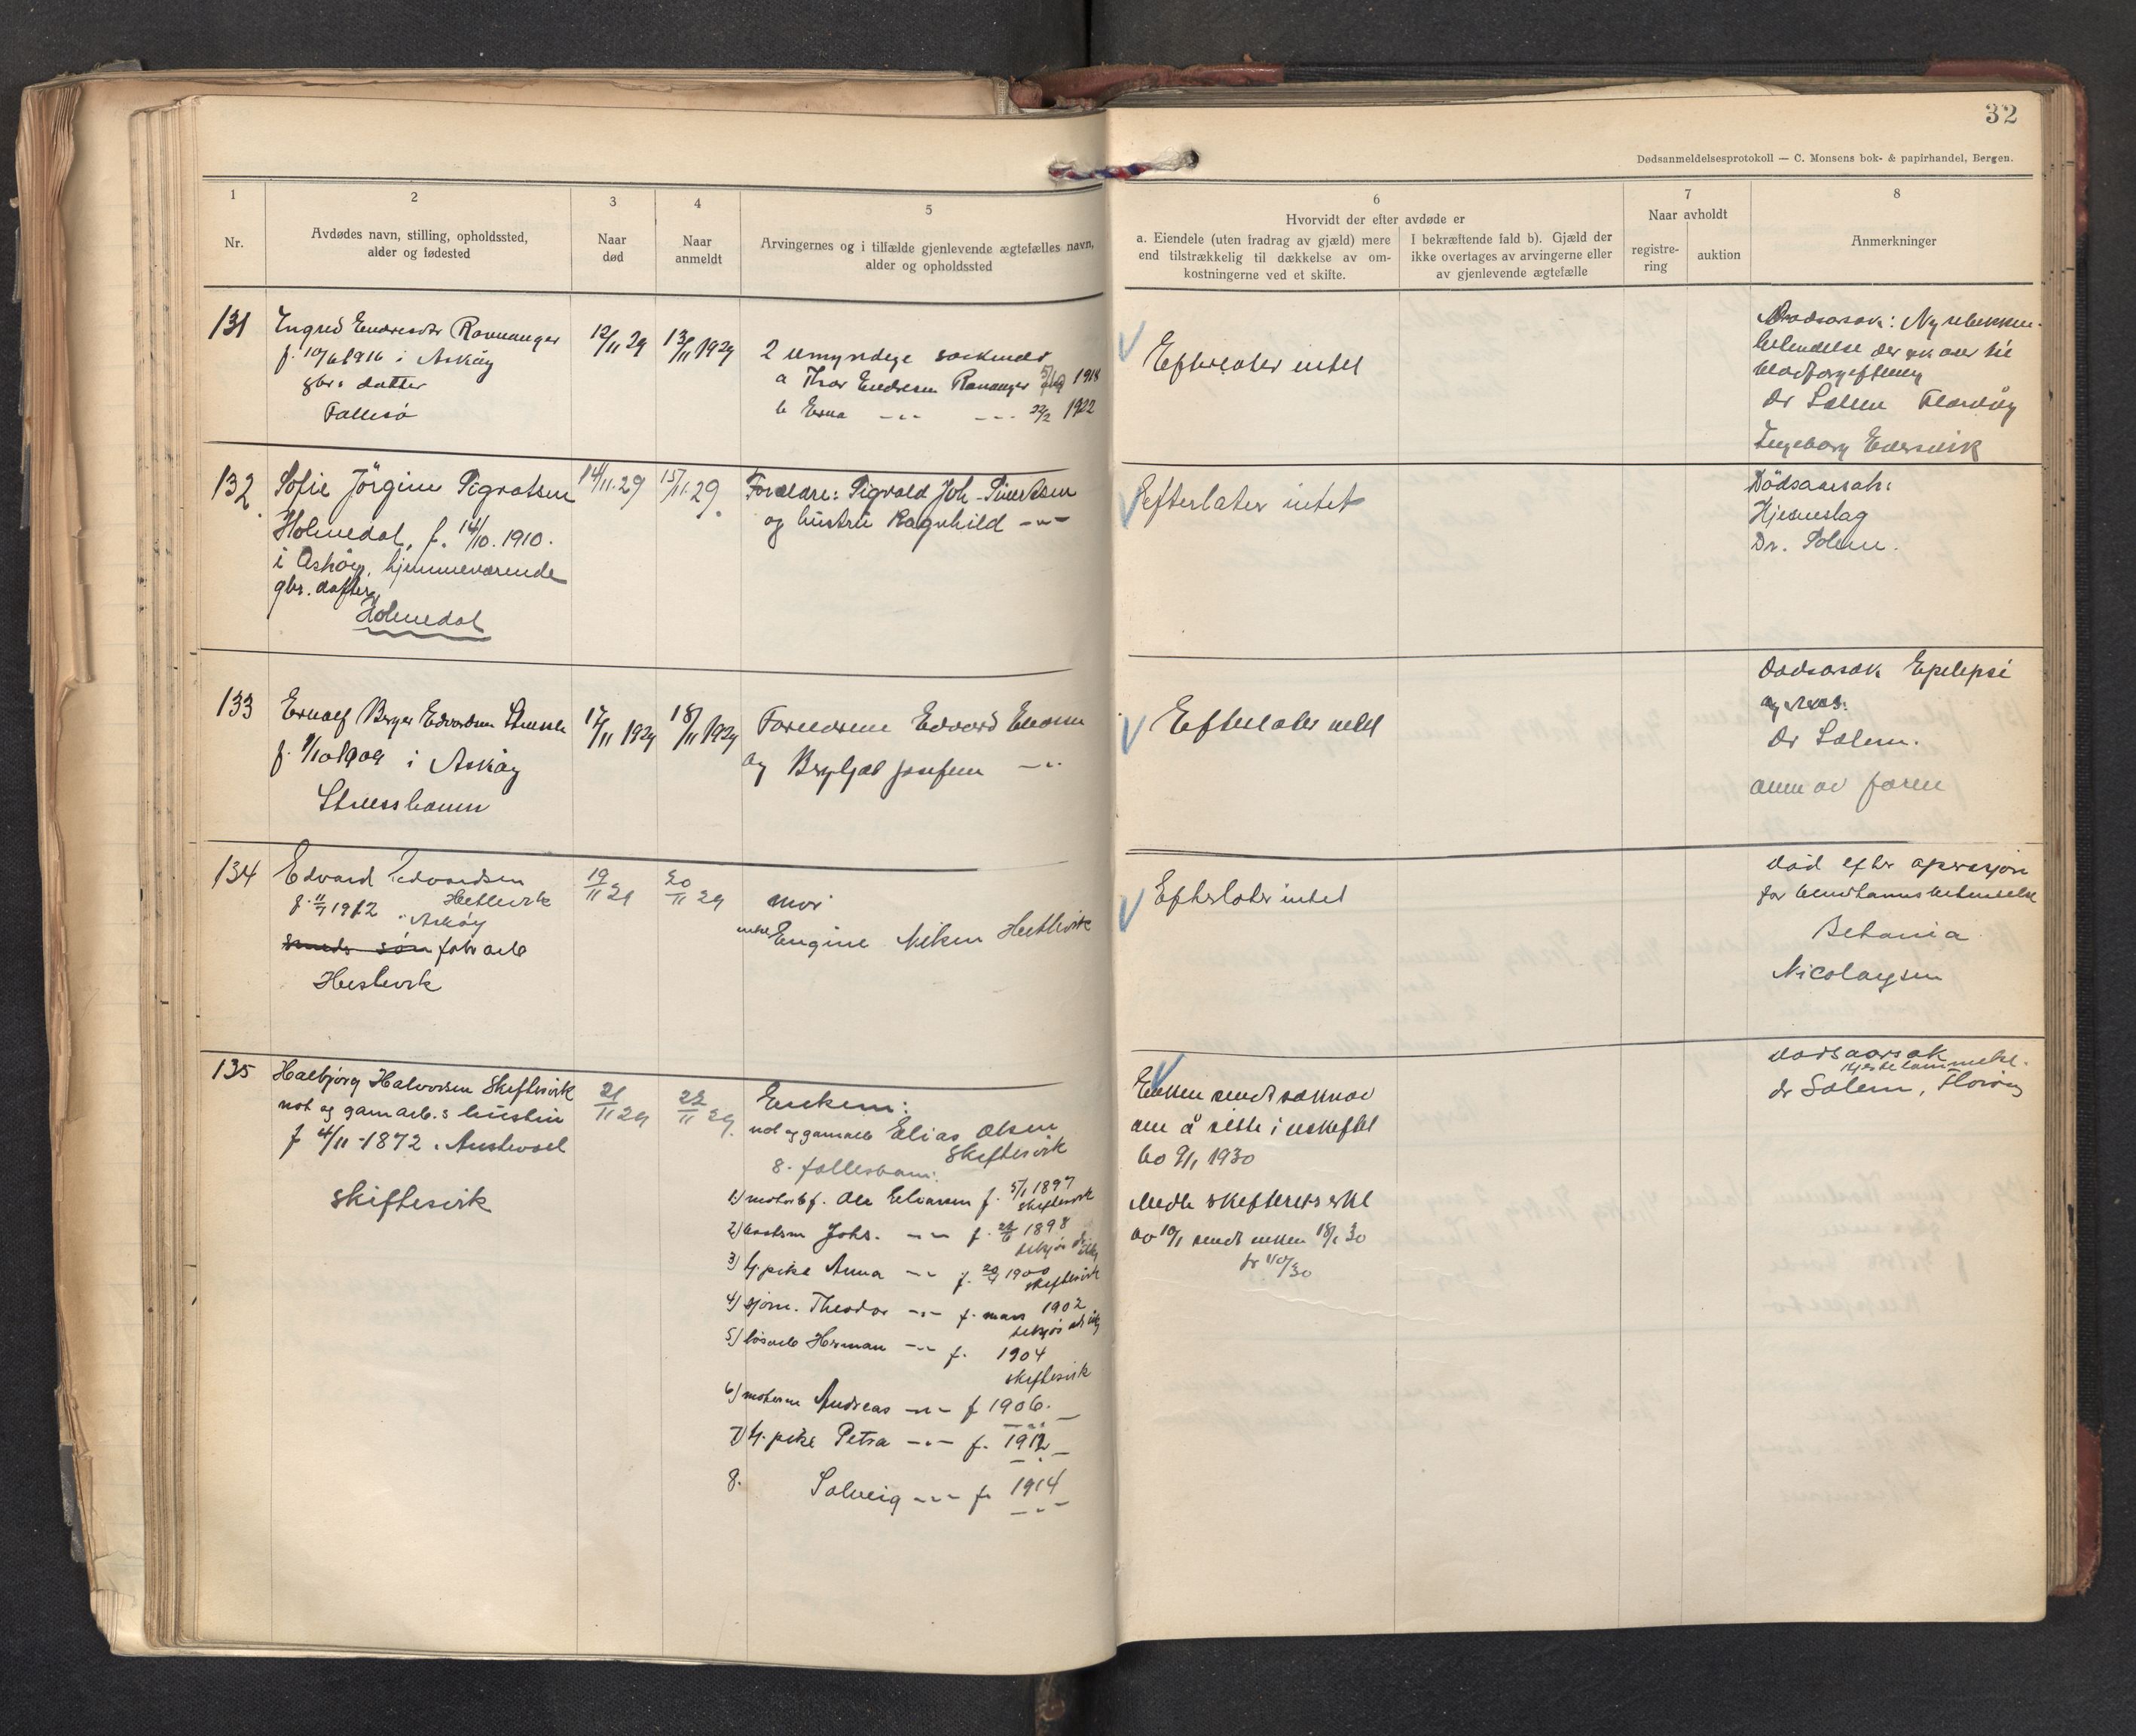 32
Dødsanmeldelsesprotokoll — C. Monsens bok- & papirhandel, Bergen.
1
Nr.
2
Avdødes navn, stilling, opholdssted,
alder og fødested
3
Naar
død
4
Naar
anmeldt
5
Arvingernes og i tilfælde gjenlevende ægtefælles navn,
alder og opholdssted
6
Hvorvidt der efter avdøde er
a. Eiendele (uten fradrag av gjæld) mere
end tilstrækkelig til dækkelse av om-
kostningerne ved et skifte.
I bekræftende fald b). Gjæld der
ikke overtages av arvingerne eller
av gjenlevende ægtefælle
7
Naar avholdt
registre-
ring
auktion
8
Anmerkninger
131
Ingrid Endresdtr Ravnanger
f. 10/6 1916 i Askøy
gbr. datter
Follesø
12/11 29
13/11 1929
2 umyndige søskende
a Thor Endresen Ravnanger 1918
b Erna -"- -"- 22/2 1922
Efterlater intet
Dødsorsak: Nyrebekken-
betendelse
blodforgiftning
Dr Solem Florvåg
Ingeborg
132.
Sofie Jörgine Sigvatsen
Holmedal, f. 14/10. 1910.
i Askøy, hjemmeværende
gbr. datter,
Holmedal
14/11.29
15/11.29.
Foreldre: Sigvald Joh. Sivertsen
og hustru Ragnhild -"-
Efterlater intet
Dödsaarsak:
Hjerneslag
Dr. Solem.
133
Berger Edvardsen
f. 9/10 1909 i Askøy
Struss havn
17/11 1929
18/11 1929
Foreldrene Edvard
og josefine -"-
Efterlater intet
Dødsorsak Epilepsi
Dr Solem.
anm av faren
134
Edvard Edvardsen
Hetlevik
f. 11/7 1912 i Askøy
smeds søn fabr arb
Hetlevik
19/11 29
20/11 29
mor
enke Engine Nilsen Hetlevik
Efterlater intet
død efter operasjon
for blindtarmsbetendelse
Betania
Nicolaysen
135
Halbjørg Halvorsen Skiftesvik
not og garnarb.s hustru
f 4/11-1872 i Austevoll
Skiftesvik
21/11 29
22/11 29.
Enkem:
not og garnarb Elias Olsen
Skiftesvik
8. fellesbarn:
1) motorbf. Ole Eliassen f. 5/1 1897
Skiftesvik
2) Johs. -"- f. 1898
3) tj. pike Anna -"- f. 20/4 1900
Skiftesvik
4) sjøm. Theodor -"- f. mars 1902
5) løsarb Herman -"- f. 1904
Skiftesvik
6) Andreas -"- f 1906.
-"-
7) tj. pike Petra -"- f. 1912
-"-
8. Solveig -"- f. 1914
-"-
Enkem sendt søknad
om å sitte i uskiftet
bo 9/1 1930
Medt skifterettserkl
av 10/1 sendt enkem 18/1 30
dødsaarsak
Hjertelammelse.
dr Solem, Florvåg